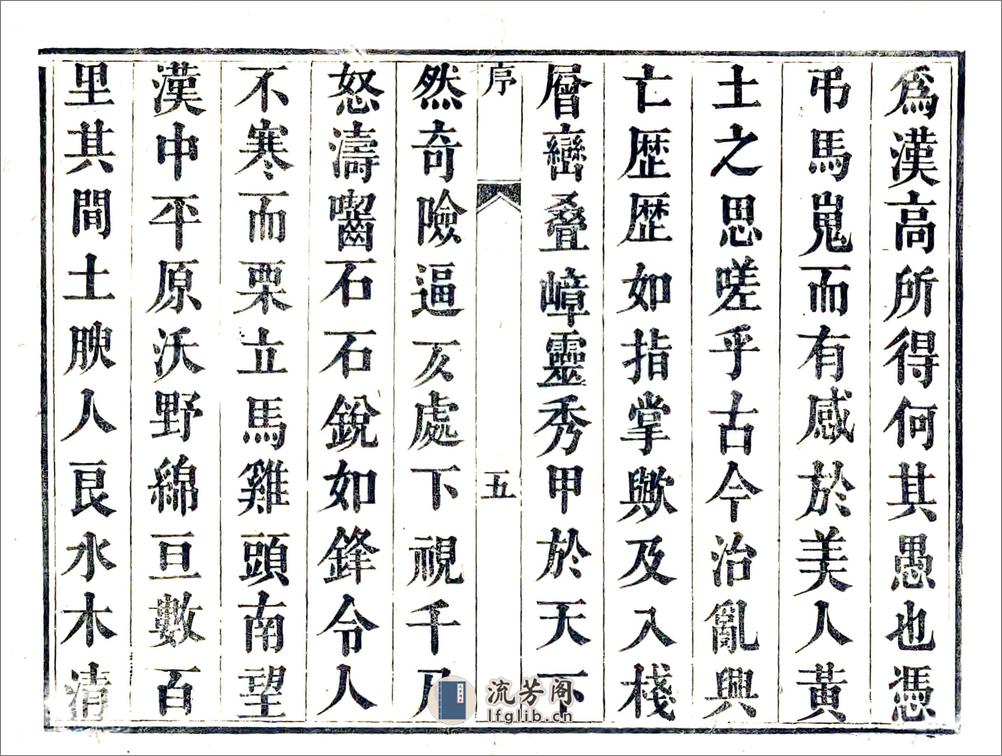 爲漢高所得何其愚也憑
弔馬嵬而有感於美人黃
土之思嗟乎古今治亂興
亡歴歴如指掌歟及入棧
層巒叠嶂靈秀甲於天下
序 五
然奇險逼仄處下視千乃
怒濤囓石石銳如鋒令人
不寒而栗立馬雞頭南望
漢中平原沃野綿亘數百
里其間土腴人良水木清
流芳阁
lfglib.cn